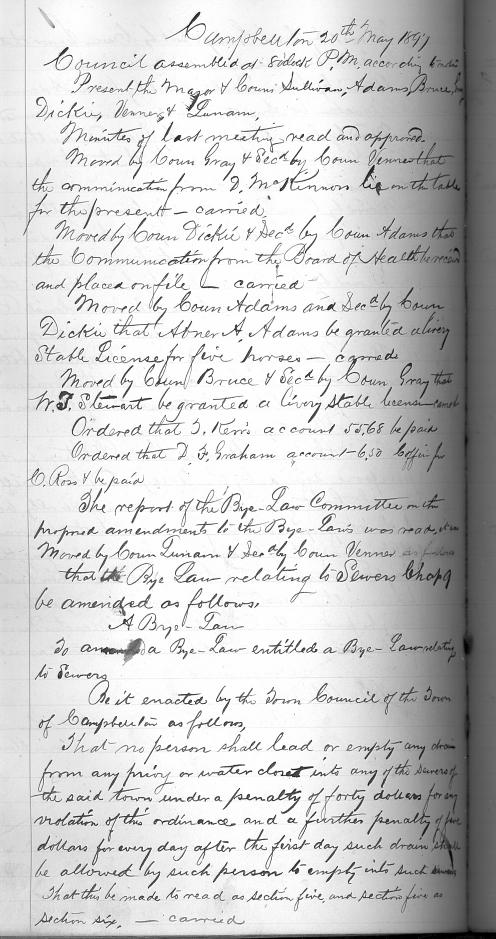 Campbellton 20th May 1897
Council assembled at 8 oclock P.M. according to
Present the Mayor & Couns Sullivan, Adams, Bruce, Gray
Dickie, Venner & Lunam,
Minutes of last meeting read and approved
Moved by Coun Gray & Secd by Coun Venner that
the communication from D. McKinnon lie on the table
for the present — carried
Moved by Coun Dickie & Secd by Coun Adams that
the Communication from the Board of Health be received
and placed on file — carried
Moved by Coun Adams and Secd by Coun
Dickie that Abner A. Adams be granted a livery
Stable License for five horses — carried
Moved by Coun Bruce & Secd by Coun Gray that
W. J. Stewart be granted a livery stable license carried
Ordered that T. Kerrs account 55.68 be paid
Ordered that D. F. Graham account 6.50 Coffin for
C. Ross & be paid
The report of the Bye-Law Committee on the
proposed amendments to the Bye-Laws was read, it was
Moved by Coun Lunam & Secd by Coun Venner as follows
that the Bye Law relating to Sewers Chap 9
be amended as follows.
A Bye-Law
To a Bye-Law entitled a Bye-Law relating
to Sewers
Be it enacted by the Town Council of the Town
of Campbellton as follows,
That no person shall lead or empty any drain
from any privy or water closet into any of the sewers of
the said town under a penalty of forty dollars for any
violation of this ordinance and a further penalty of five
dollars for every day after the first day such drain shall
be allowed by such person to empty into such sewers
That this be made to read as section five, and section five as
section six, — carried